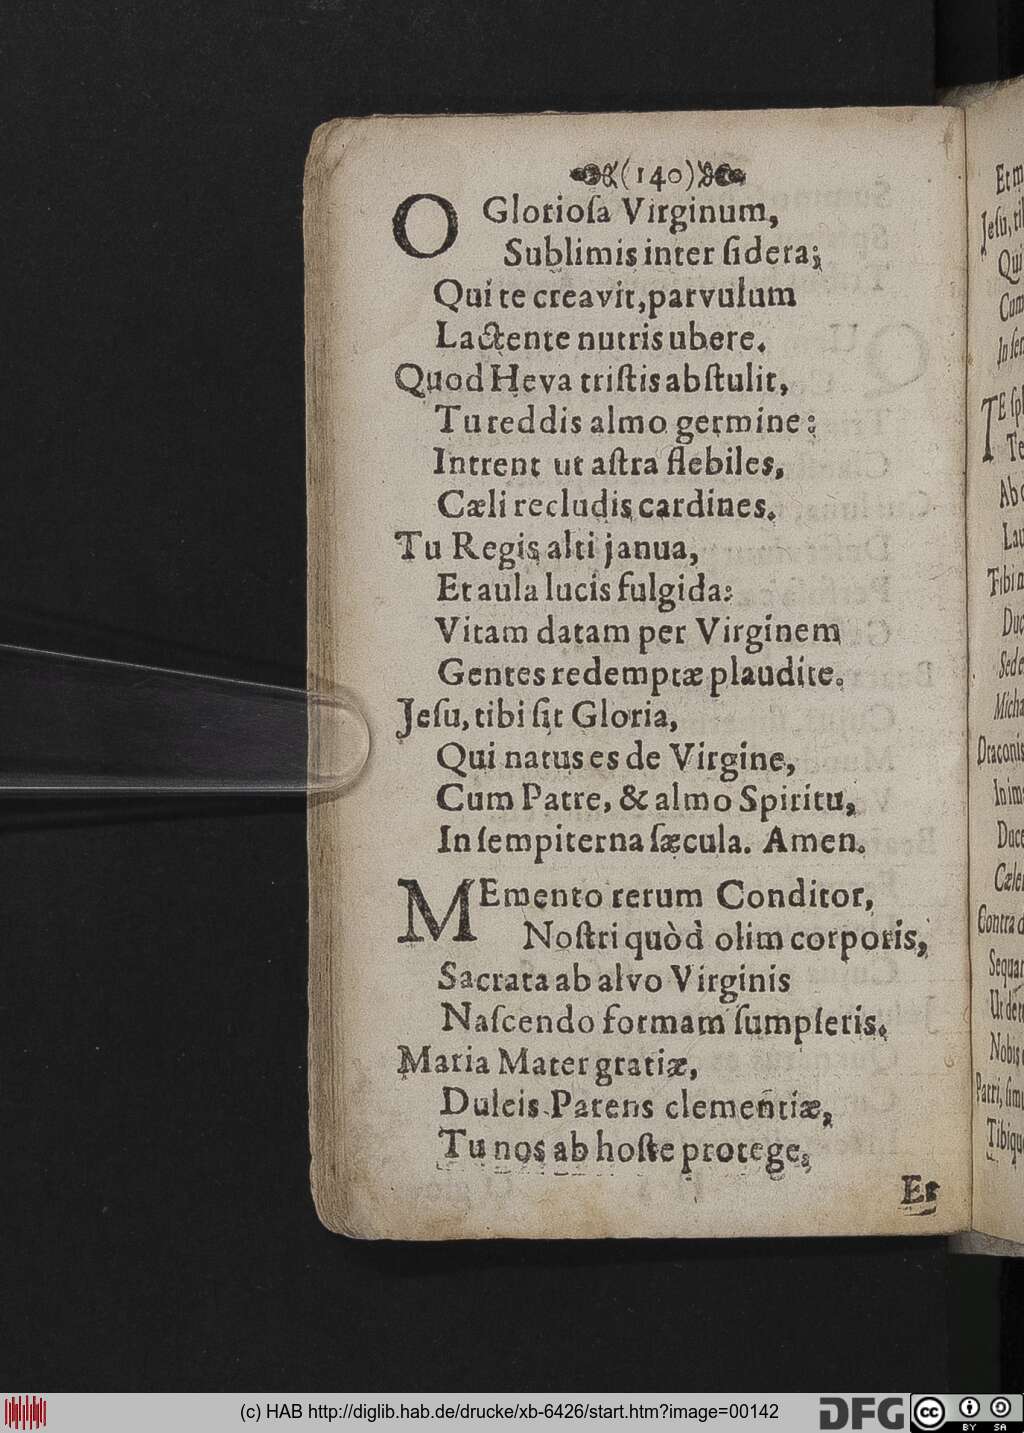 (140)
O Glorioſa Virginum,
Sublimis inter ſidera;
Qui te creavit, parvulum
Lactente nutris ubere.
Quod Heva triſtis abſtulit,
Tu reddis almo germine:
Intrent ut aſtra flebiles,
Cæli recludis cardines.
Tu Regis alti janua,
Et aula lucis fulgida:
Vitam datam per Virginem
Gentes redemptæ plaudite.
Jeſu, tibi ſit Gloria,
Qui natus es de Virgine,
Cum Patre, & almo Spiritu,
In ſempiterna ſæcula. Amen.
MEmento rerum Conditor,
Noſtri quòd olim corporis,
Sacrata ab alvo Virginis
Naſcendo formam ſumpſeris.
Maria Mater gratiæ,
Dulcis Parens clementiæ,
Tu nos ab hoſte protege,
Et
Et m
Jeſu, ti
Qui
Cum
In ſer
TE ſpl
Te
Abo
Lau
Tibi n
Duc
Sede
Micha
Draconis
In im
Duce
Cæle
Contra d
Sequa
Ut de
Nobis
Patri, ſimu
Tibiqu
(c) HAB http://diglib.hab.de/drucke/xb-6426/start.htm?image=00142
DFG
cc
BY SA